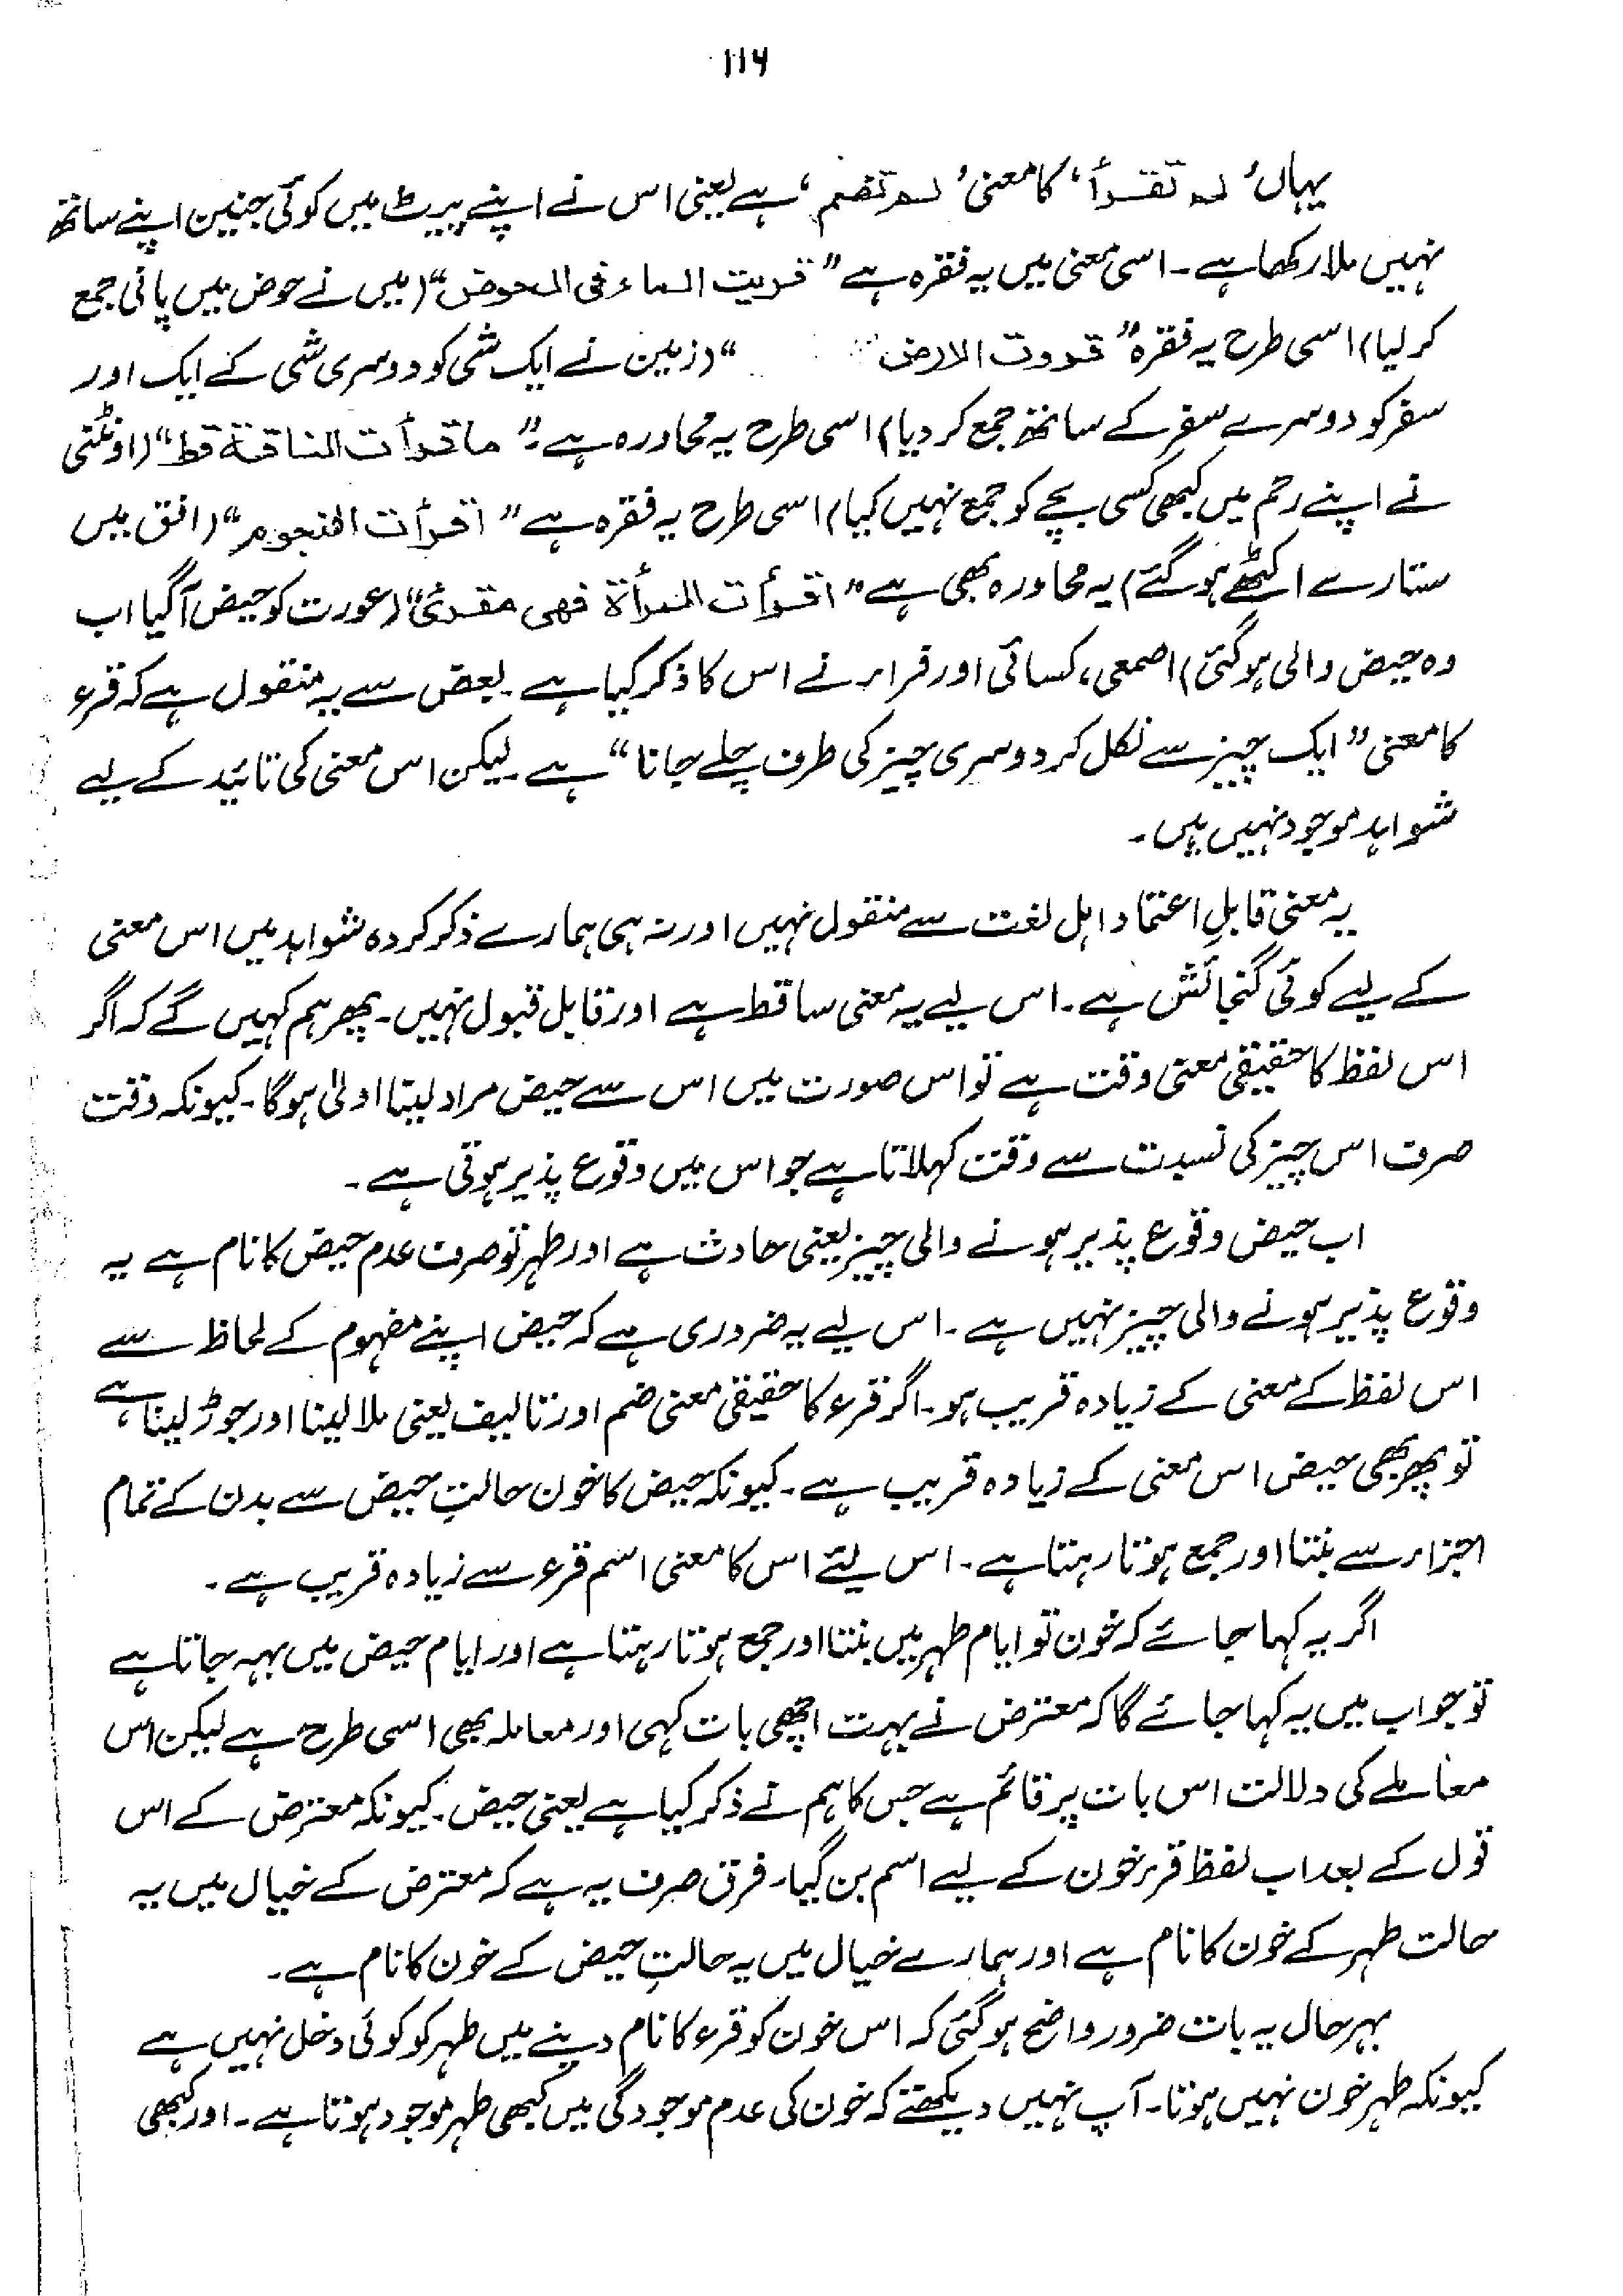 ۱۱۶
یہاں ’لم تقرأ‘ کا معنی ’لم تضم‘ ہے یعنی اس نے اپنے پیٹ میں کوئی جنین اپنے ساتھ
نہیں ملا رکھا ہے۔ اسی معنی میں یہ فقرہ ہے ”قریت الماء فی الحوض“ (میں نے حوض میں پانی جمع
کر لیا) اسی طرح یہ فقرہ ”قروت الارض “ (زمین نے ایک شی کو دوسری شی کے ایک اور
سفر کو دوسرے سفر کے ساتھ جمع کر دیا) اسی طرح یہ محاورہ ہے۔ ”ما قرأت الناقة قط“ (اونٹنی
نے اپنے رحم میں کبھی کسی بچے کو جمع نہیں کیا) اسی طرح یہ فقرہ ہے ”اقرأت النجوم“ (افق میں
ستارے اکٹھے ہو گئے) یہ محاورہ بھی ہے ”اقرأت المرأة فھی مقرئ“ (عورت کو حیض آ گیا اب
وہ حیض والی ہو گئی) اصمعی، کسائی اور فراء نے اس کا ذکر کیا ہے۔ بعض سے یہ منقول ہے کہ قرء
کا معنی ”ایک چیز سے نکل کر دوسری چیز کی طرف چلے جانا“ ہے۔ لیکن اس معنی کی تائید کے لیے
شواہد موجود نہیں ہیں۔
یہ معنی قابلِ اعتماد اہل لغت سے منقول نہیں اور نہ ہی ہمارے ذکر کردہ شواہد میں اس معنی
کے لیے کوئی گنجائش ہے۔ اس لیے یہ معنی ساقط ہے اور قابل قبول نہیں۔ پھر ہم کہیں گے کہ اگر
اس لفظ کا حقیقی معنی وقت ہے تو اس صورت میں اس سے حیض مراد لینا اولیٰ ہوگا۔ کیونکہ وقت
صرف اس چیز کی نسبت سے وقت کہلاتا ہے جو اس میں وقوع پذیر ہوتی ہے۔
اب حیض وقوع پذیر ہونے والی چیز یعنی حادث ہے اور طہر تو صرف عدم حیض کا نام ہے یہ
وقوع پذیر ہونے والی چیز نہیں ہے۔ اس لیے یہ ضروری ہے کہ حیض اپنے مفہوم کے لحاظ سے
اس لفظ کے معنی کے زیادہ قریب ہو۔ اگر قرء کا حقیقی معنی ضم اور تالیف یعنی ملا لینا اور جوڑ لینا ہے،
تو پھر بھی حیض اس معنی کے زیادہ قریب ہے۔ کیونکہ حیض کا خون حالتِ حیض سے بدن کے تمام
اجزاء سے بنتا اور جمع ہوتا رہتا ہے۔ اس لئے اس کا معنی اسم قرء سے زیادہ قریب ہے۔
اگر یہ کہا جائے کہ خون تو ایام طہر میں بنتا اور جمع ہوتا رہتا ہے اور ایام حیض میں بہہ جاتا ہے
تو جواب میں یہ کہا جائے گا کہ معترض نے بہت اچھی بات کہی اور معاملہ بھی اسی طرح ہے لیکن اس
معاملے کی دلالت اس بات پر قائم ہے جس کا ہم نے ذکر کیا ہے یعنی حیض۔ کیونکہ معترض کے اس
قول کے بعد اب لفظ قرء خون کے لیے اسم بن گیا۔ فرق صرف یہ ہے کہ معترض کے خیال میں یہ
حالت طہر کے خون کا نام ہے اور ہمارے خیال میں یہ حالتِ حیض کے خون کا نام ہے۔
بہر حال یہ بات ضرور واضح ہو گئی کہ اس خون کو قرء کا نام دینے میں طہر کو کوئی دخل نہیں ہے
کیونکہ طہر خون نہیں ہوتا۔ آپ نہیں دیکھتے کہ خون کی عدم موجودگی میں کبھی طہر موجود ہوتا ہے۔ اور کبھی